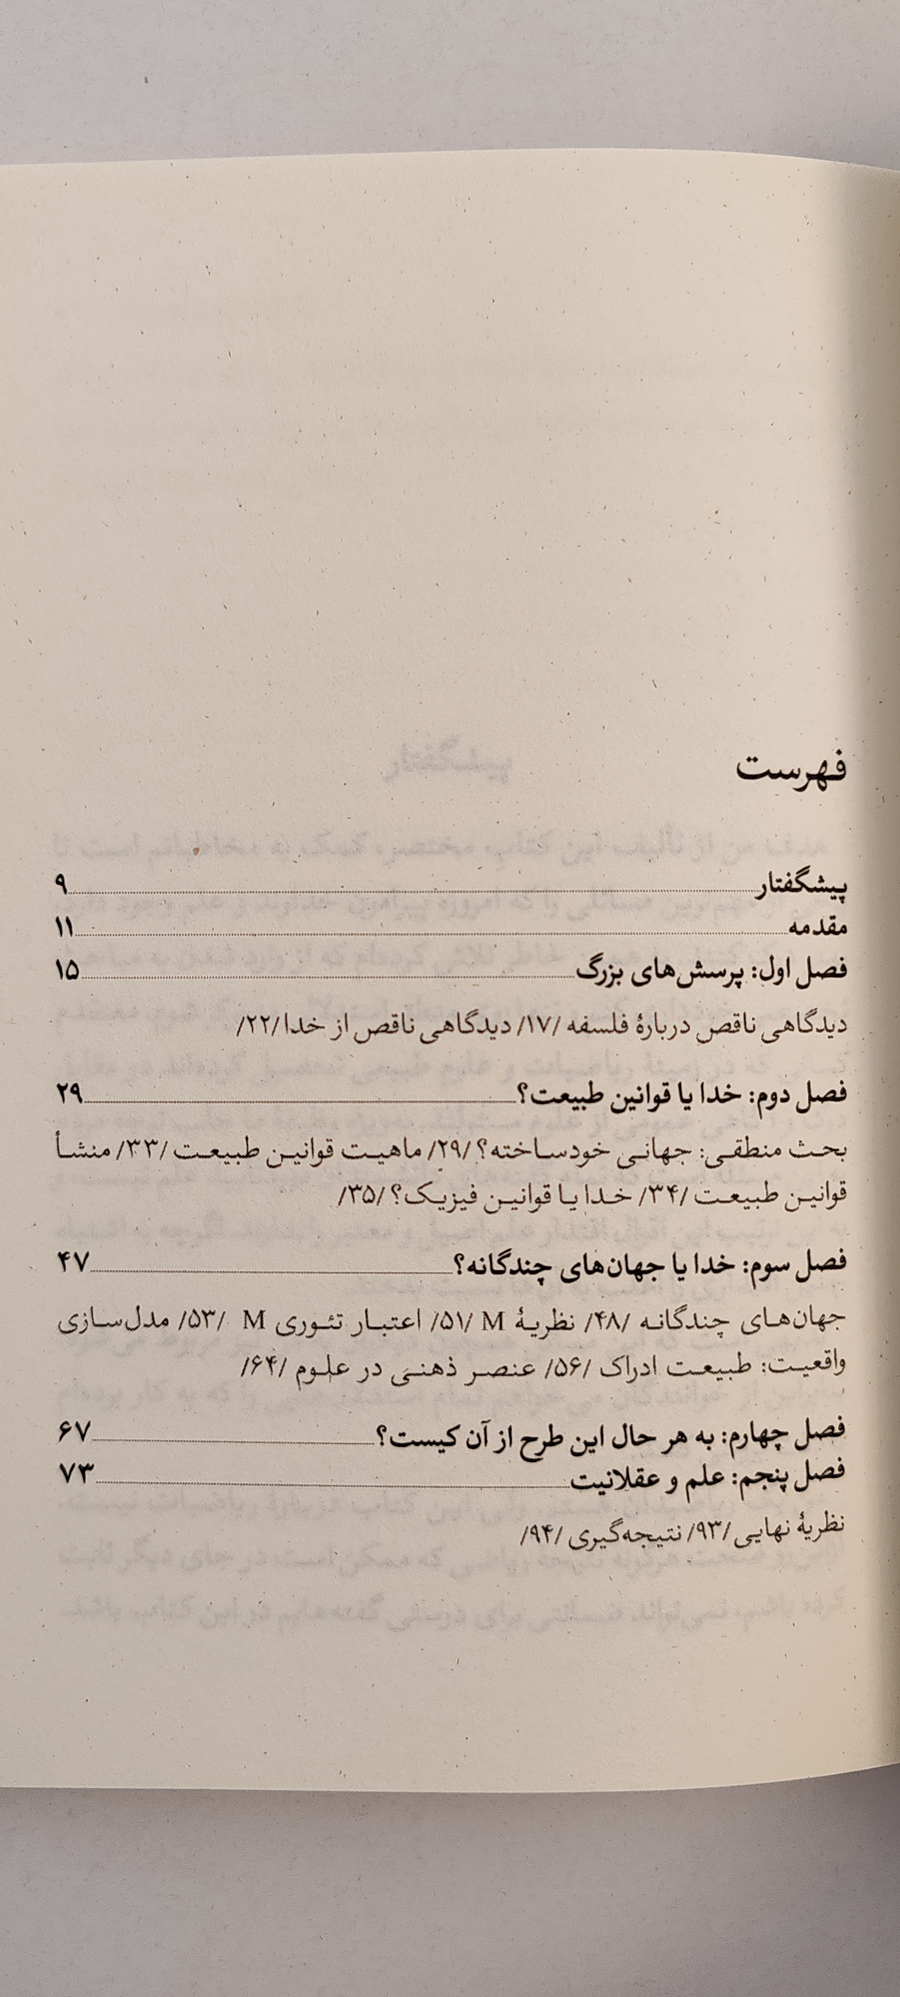 فهرست
پیشگفتار ۹
مقدمه ۱۱
فصل اول: پرسش‌های بزرگ ۱۵
دیدگاهی ناقص دربارهٔ فلسفه /۱۷/ دیدگاهی ناقص از خدا /۲۲/
فصل دوم: خدا یا قوانین طبیعت؟ ۲۹
بحث منطقی: جهانی خودساخته؟ /۲۹/ ماهیت قوانین طبیعت /۳۳/ منشأ
قوانین طبیعت /۳۴/ خدا یا قوانین فیزیک؟ /۳۵/
فصل سوم: خدا یا جهان‌های چندگانه؟ ۴۷
جهان‌های چندگانه /۴۸/ نظریهٔ M /۵۱/ اعتبار تئوری M /۵۳/ مدل‌سازی
واقعیت: طبیعت ادراک /۵۶/ عنصر ذهنی در علوم /۶۴/
فصل چهارم: به هر حال این طرح از آن کیست؟ ۶۷
فصل پنجم: علم و عقلانیت ۷۳
نظریهٔ نهایی /۹۳/ نتیجه‌گیری /۹۴/